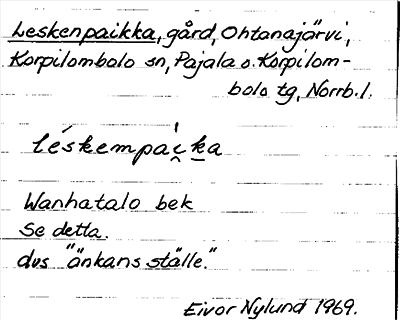 Leskenpaikka, gård, Ohtanajärvi,
Korpilombolo sn, Pajala o. Korpilom-
bolo tg, Norrb. l.
léskempai̯ḱ̠a
Wanhatalo bek
Se detta.
dvs "änkans ställe."
Eivor Nylund 1969.